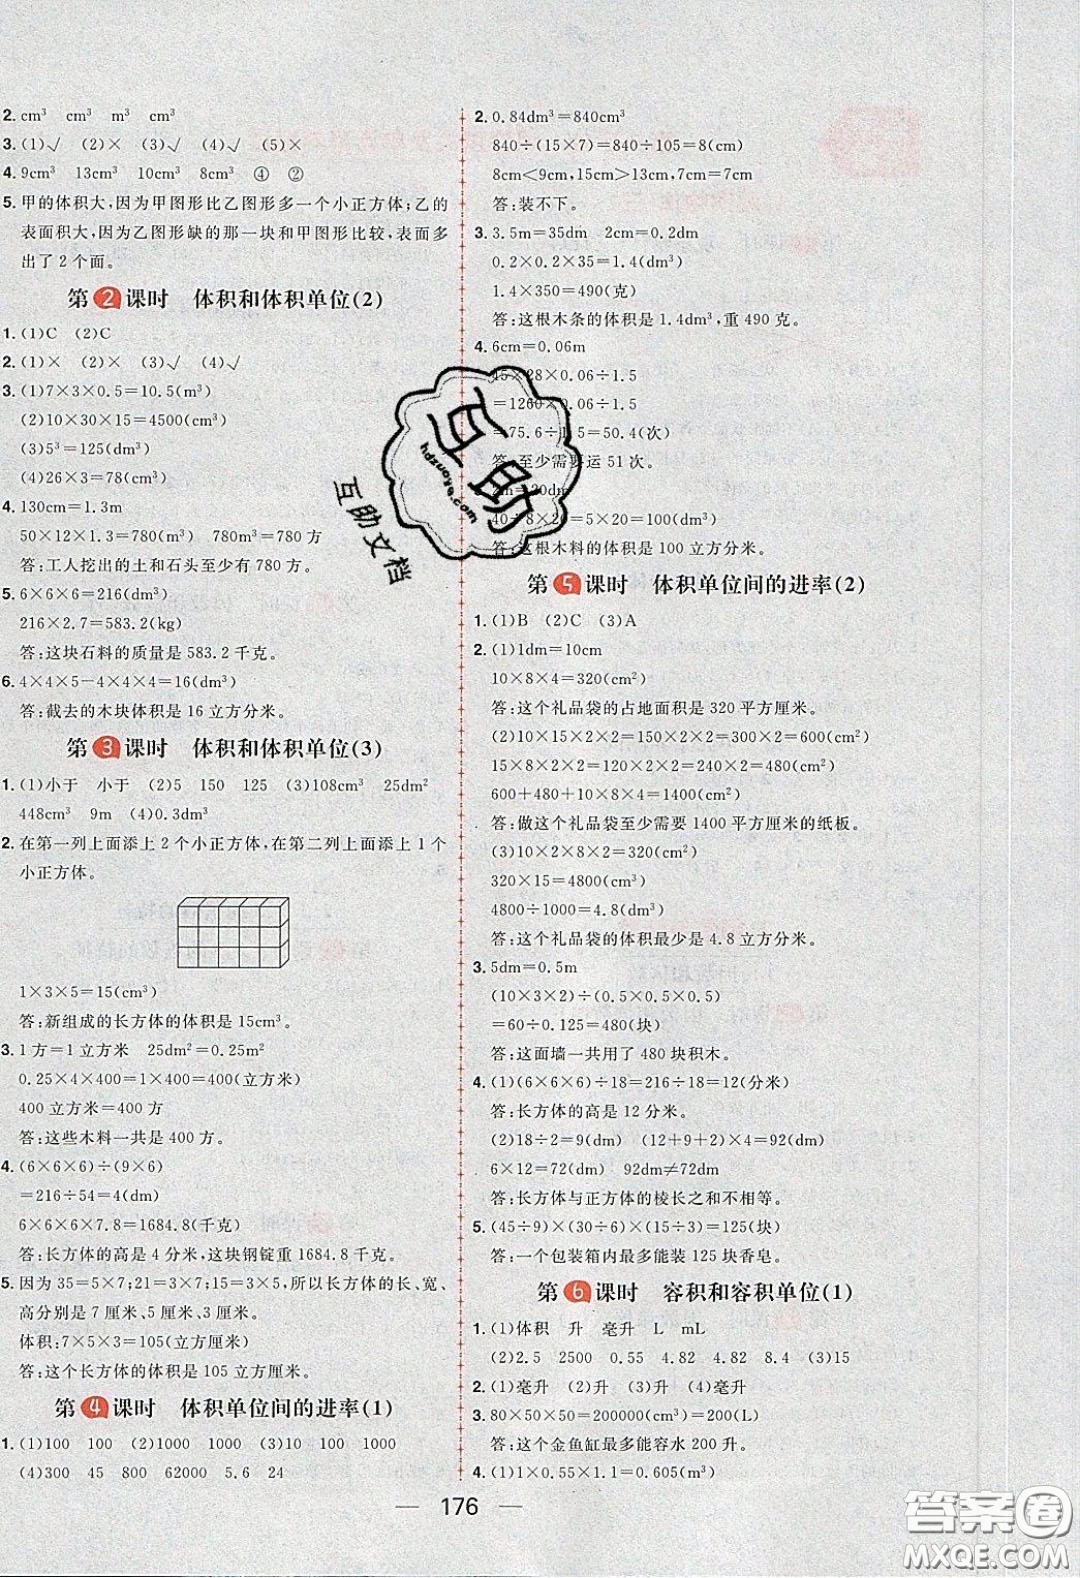 2. cm³ cm³ m³ cm³
3. (1)√ (2)× (3)√ (4)√ (5)×
4. 9cm³ 13cm³ 10cm³ ④ ②
5. 甲的体积大,因为甲图形比乙图形多一个小正方体;乙的
表面积大,因为乙图形缺的那一块和甲图形比较,表面多
出了2个面。
第2课时 体积和体积单位(2)
1. (1)C (2)C
2. (1)× (2)× (3)√ (4)√
3. (1)7×3×0.5=10.5(m³)
(2)10×30×15=4500(cm³)
(3)5³=125(dm³)
(4)26×3=78(cm³)
4. 130cm=1.3m
50×12×1.3=780(m³) 780m³=780方
答:工人挖出的土和石头至少有780方。
5. 6×6×6=216(dm³)
216×2.7=583.2(kg)
答:这块石料的质量是583.2千克。
6. 4×4×5-4×4×4=16(dm³)
答:截去的木块体积是16立方分米。
第3课时 体积和体积单位(3)
1. (1)小于 小于 (2)5 150 125 (3)108cm³ 25dm²
448cm³ 9m (4)0.3dm³
2. 在第一列上面添上2个小正方体,在第二列上面添上1个
小正方体。
1×3×5=15(cm³)
答:新组成的长方体的体积是15cm³。
3. 1方=1立方米 25dm²=0.25m²
0.25×4×400=1×400=400(m³)
400立方米=400方
答:这些木料一共是400方。
4. (6×6×6)÷(9×6)
=216÷54=4(dm)
6×6×6×7.8=1684.8(千克)
答:长方体的高是4分米,这块钢锭重1684.8千克。
5. 因为35=5×7;21=3×7;15=3×5,所以长方体的长、宽、
高分别是7厘米、5厘米、3厘米。
体积:7×5×3=105(立方厘米)
答:这个长方体的体积是105立方厘米。
第4课时 体积单位间的进率(1)
1. (1)100 100 (2)1000 1000 (3)10 100 1000
(4)300 45 800 62000 5.6 24
2. 0.84dm³=840cm³
840÷(15×7)=840÷105=8(cm)
8cm<9cm,15cm>13cm,7cm=7cm
答:装不下。
3. 3.5m=35dm 2cm=0.2dm
0.2×0.2×35=1.4(dm³)
1.4×350=490(克)
答:这根木条的体积是1.4dm³,重490克。
4. 6cm=0.06m
45×28×0.06÷1.5
=1260×0.06÷1.5
=75.6÷1.5=50.4(次)
答:至少需要运51次。
2m=20dm
40÷8×20=5×20=100(dm³)
答:这根木料的体积是100立方分米。
第5课时 体积单位间的进率(2)
1. (1)B (2)C (3)A
2. (1)1dm=10cm
10×8×4=320(cm²)
答:这个礼品袋的占地面积是320平方厘米。
(2)10×15×2×2=150×2×2=300×2=600(cm²)
15×8×2×2=120×2×2=240×2=480(cm²)
600+480+10×8×4=1400(cm²)
答:做这个礼品袋至少需要1400平方厘米的纸板。
(3)10×8×4=320(cm²)
320×15=4800(cm³)
4800÷1000=4.8(dm³)
答:这个礼品袋的体积最少是4.8立方分米。
3. 5dm=0.5m
(10×3×2)÷(0.5×0.5×0.5)
=60÷0.125=480(块)
答:这面墙一共用了480块积木。
4. (1)(6×6×6)÷18=216÷18=12(分米)
答:长方体的高是12分米。
(2)18÷2=9(dm) (12+9+2)×4=92(dm)
6×12=72(dm) 92dm≠72dm
答:长方体与正方体的棱长之和不相等。
5. (45÷9)×(30÷6)×(15÷3)=125(块)
答:一个包装箱内最多能装125块香皂。
第6课时 容积和容积单位(1)
1. (1)体积 升 毫升 L mL
(2)2.5 2500 0.55 4.82 4.82 8.4 (3)15
2. (1)毫升 (2)升 (3)升 (4)毫升
3. 80×50×50=200000(cm³)=200(L)
答:这个金鱼缸最多能容水200升。
4. (1)1×0.55×1.1=0.605(m³)
176
互助
hdzuoye.com
互助文档
答案圈
MXQE.COM